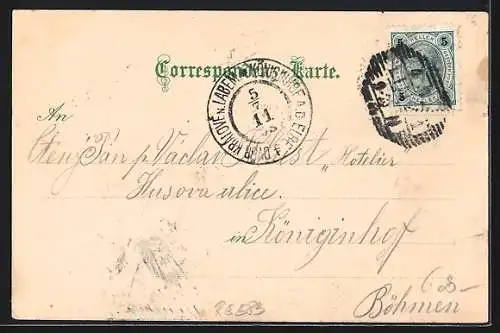 Correspondenz-Karte.
5 HELLER 5
KÖNIGINHOF A.D. ELBE
DVŮR KRÁLOVÉ n. LABEM
5
11
An
Ctěný Pán p. Václav "Hotelier
Husova ulice.
in Königinhof
Böhmen